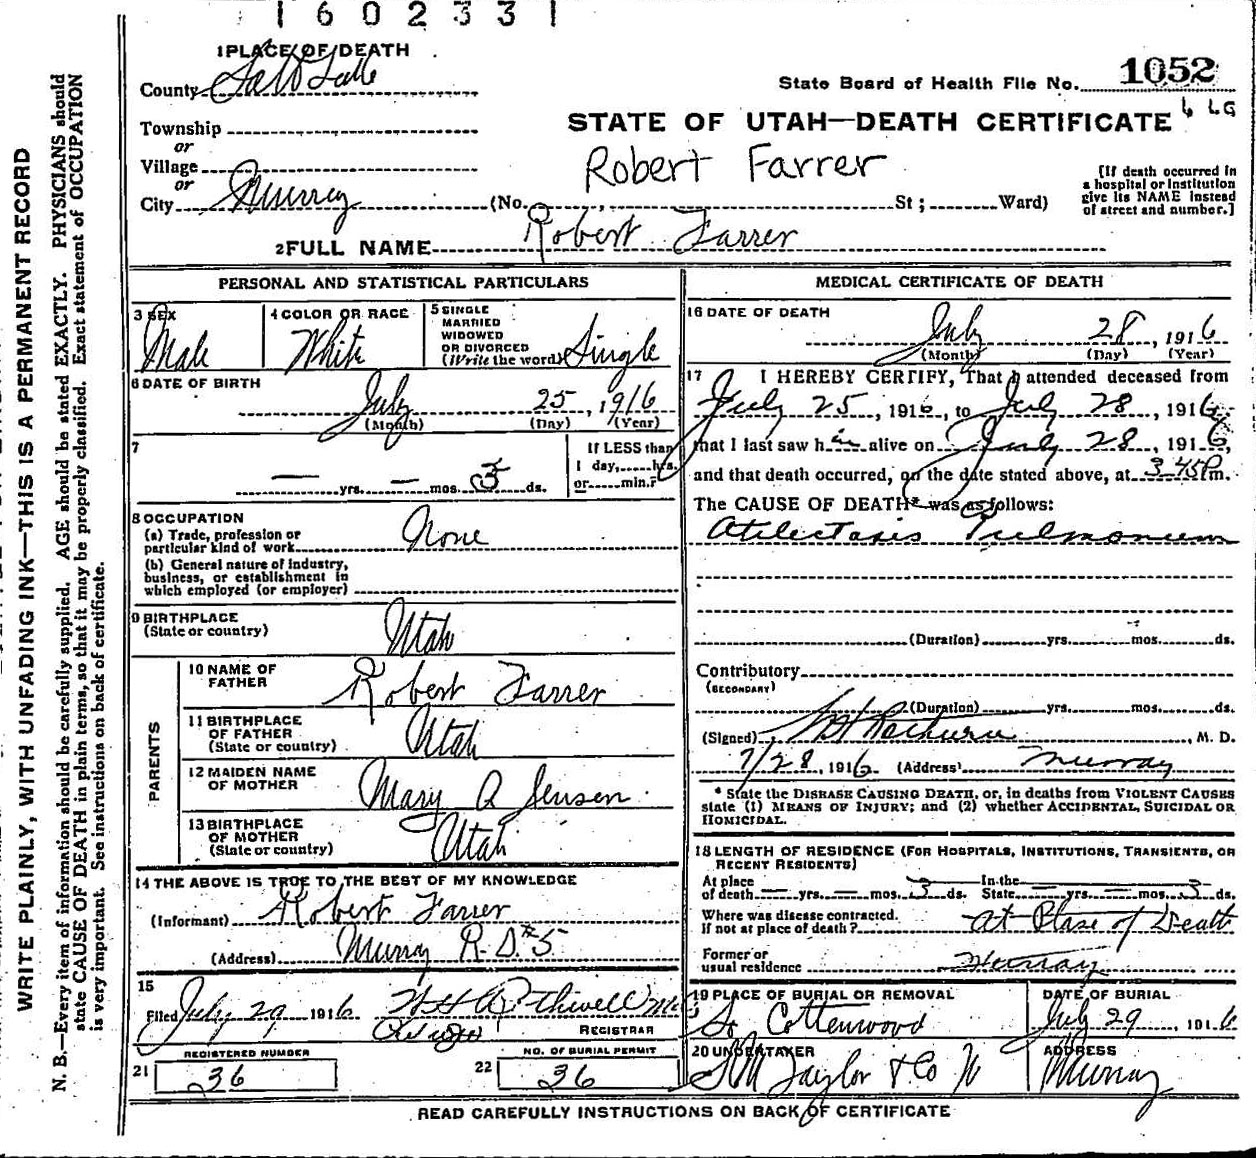 160233
1 PLACE OF DEATH
County Salt Lake
State Board of Health File No. 1052
Township
or
STATE OF UTAH—DEATH CERTIFICATE
Village
or
Robert Farrer
[If death occurred in
a hospital or institution
give its NAME instead
of street and number.]
City Murray (No. , St ; Ward)
2 FULL NAME Robert Farrer
PERSONAL AND STATISTICAL PARTICULARS
3 SEX
Male
4 COLOR OR RACE
White
5 SINGLE
MARRIED
WIDOWED
OR DIVORCED
(Write the word) Single
6 DATE OF BIRTH
July 25, 1916
(Month) (Day) (Year)
7
— yrs. — mos. 3 ds.
If LESS than
1 day, hrs.
or min.?
8 OCCUPATION
(a) Trade, profession or
particular kind of work None
(b) General nature of industry,
business, or establishment in
which employed (or employer)
9 BIRTHPLACE
(State or country) Utah
PARENTS
10 NAME OF
FATHER Robert Farrer
11 BIRTHPLACE
OF FATHER
(State or country) Utah
12 MAIDEN NAME
OF MOTHER Mary A Jensen
13 BIRTHPLACE
OF MOTHER
(State or country) Utah
14 THE ABOVE IS TRUE TO THE BEST OF MY KNOWLEDGE
(Informant) Robert Farrer
(Address) Murray R.D. #5
15
Filed July 29 1916
REGISTRAR
REGISTERED NUMBER
21 36
NO. OF BURIAL PERMIT
22 36
MEDICAL CERTIFICATE OF DEATH
16 DATE OF DEATH
July 28, 1916
(Month) (Day) (Year)
17 I HEREBY CERTIFY, That I attended deceased from
July 25, 1916, to July 28, 1916,
that I last saw him alive on July 28, 1916,
and that death occurred, on the date stated above, at 3 45 P m.
The CAUSE OF DEATH* was as follows:
Atilectasis Pulmonum
(Duration) yrs. mos. ds.
Contributory
(SECONDARY)
(Duration) yrs. mos. ds.
(Signed) , M. D.
7/28, 1916 (Address) Murray
* State the DISEASE CAUSING DEATH, or, in deaths from VIOLENT CAUSES
state (1) MEANS OF INJURY; and (2) whether ACCIDENTAL, SUICIDAL OR
HOMICIDAL.
18 LENGTH OF RESIDENCE (FOR HOSPITALS, INSTITUTIONS, TRANSIENTS, OR
RECENT RESIDENTS)
At place
of death — yrs. — mos. 3 ds. In the
State — yrs. — mos. 3 ds.
Where was disease contracted.
If not at place of death? At Place of Death
Former or
usual residence Murray
19 PLACE OF BURIAL OR REMOVAL
So Cottenwood
DATE OF BURIAL
July 29, 1916
20 UNDERTAKER
Taylor & Co
ADDRESS
Murray
READ CAREFULLY INSTRUCTIONS ON BACK OF CERTIFICATE
WRITE PLAINLY, WITH UNFADING INK—THIS IS A PERMANENT RECORD
N. B.—Every item of information should be carefully supplied. AGE should be stated EXACTLY. PHYSICIANS should
state CAUSE OF DEATH in plain terms, so that it may be properly classified. Exact statement of OCCUPATION
is very important. See instructions on back of certificate.